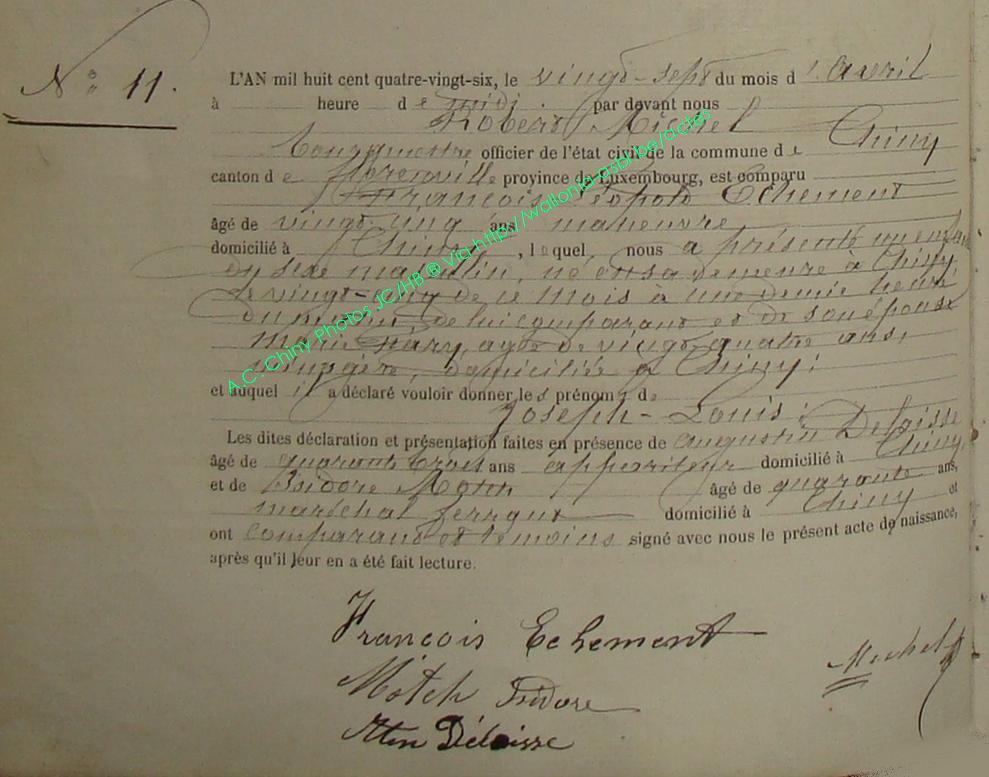 N° 11.
L'AN mil huit cent quatre-vingt-six, le vingt-sept du mois d'avril
à heure de midi. par devant nous
Robert Michel
bourgmestre officier de l'état civil de la commune de Chiny
canton de florenville province de Luxembourg, est comparu
François Léopold Echement
âgé de vingt-cinq ans manœuvre
domicilié à Chiny, lequel nous a présenté un enfant
du sexe masculin, né en sa demeure à Chiny,
le vingt-cinq de ce mois à une demie heure
du matin, de lui comparant et de son épouse
Marie, agée de vingt-quatre ans,
ménagère, domiciliée à Chiny;
et auquel il a déclaré vouloir donner les prénoms de
Joseph-Louis;
Les dites déclaration et présentation faites en présence de augustin Deloisse
âgé de quarante trois ans appariteur domicilié à Chiny,
et de Isidore âgé de quarante ans,
maréchal ferrant domicilié à Chiny et
ont comparant et témoins signé avec nous le présent acte de naissance,
après qu'il leur en a été fait lecture.
François Echement
Michel
Motch Isidore
Atin Déloisse
A.C. Chiny Photos JC/HB @ Via http://wallonia-asbl.be/actes